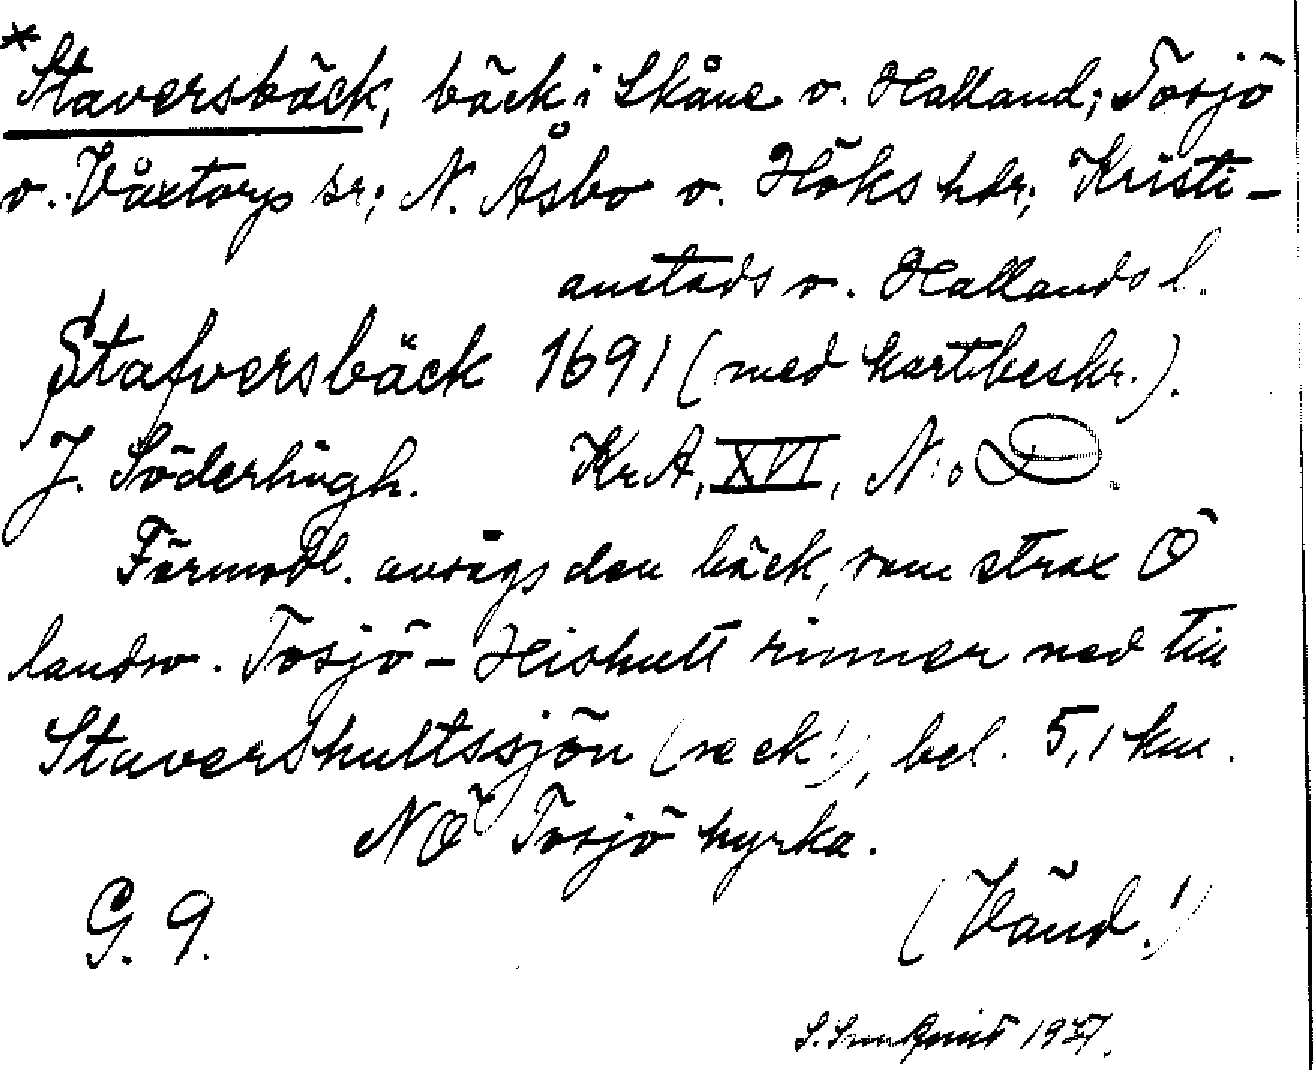 *Staversbäck, bäck i Skåne o. Halland; Tosjö
o. Våxtorps sr; N. Åsbo o. Höks hdr; Kristi-
anstads o. Hallands l.
Stafversbäck 1691 (med kartbeskr.).
J. Söderhögh. KrA, XVI, N:o D.
Förmodl. avsågs den bäck, som strax Ö
landsv. Tosjö - Hishult rinner ned till
Stavershultssjön (se ek!), bel. 5,1 km.
NÖ Tosjö kyrka.
G. 9. (Vänd!)
S. 1937.